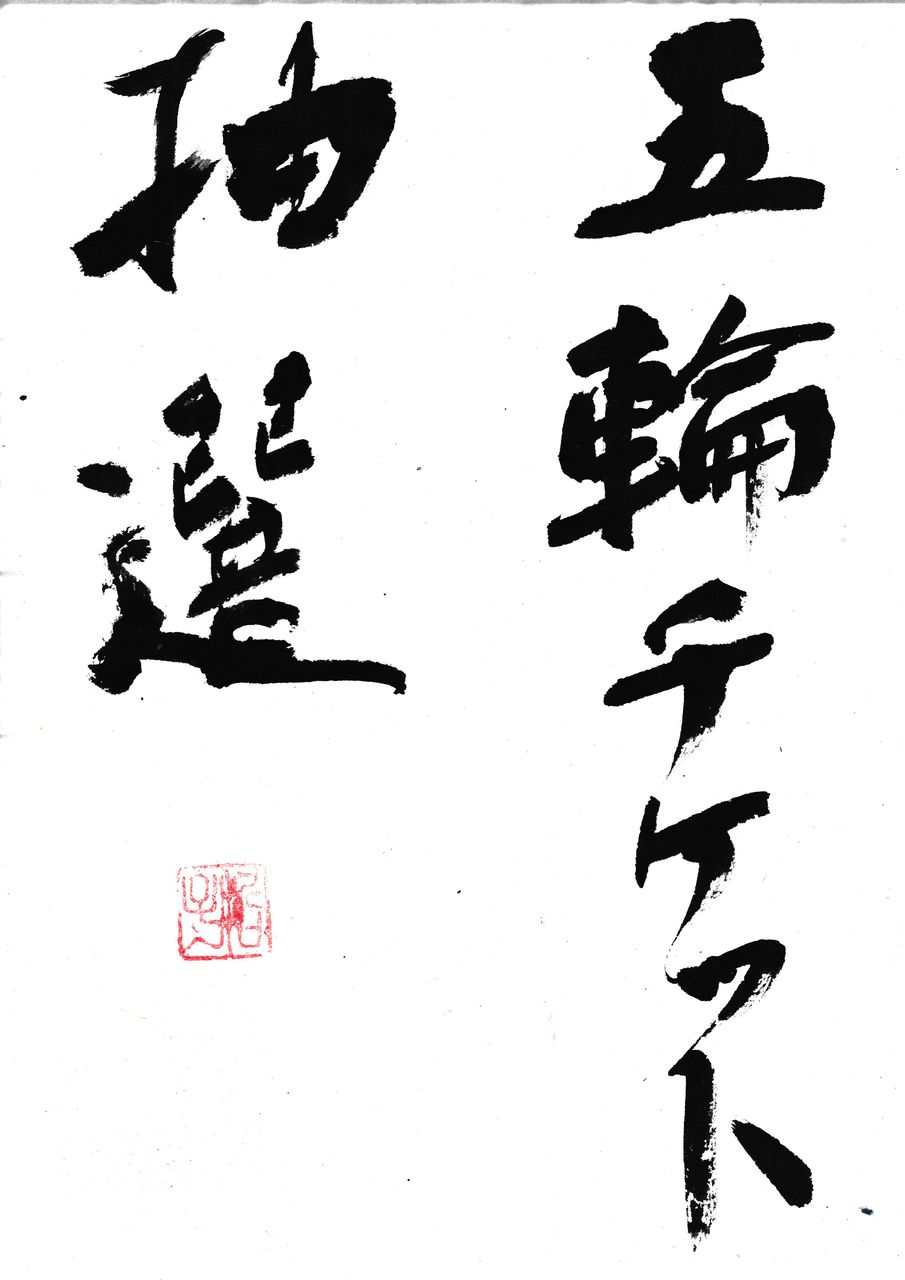 五輪チケット
抽選